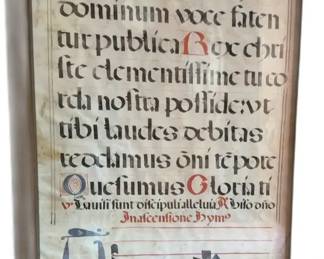 dominum voce faten
tur publica Rex chri
ste clementissime tu co
rda nostra posside: vt
tibi laudes debitas
reddamus oñi tẽpore
Quesumus Gloria ti
sunt discipuli alleluia
In ascensione hymº